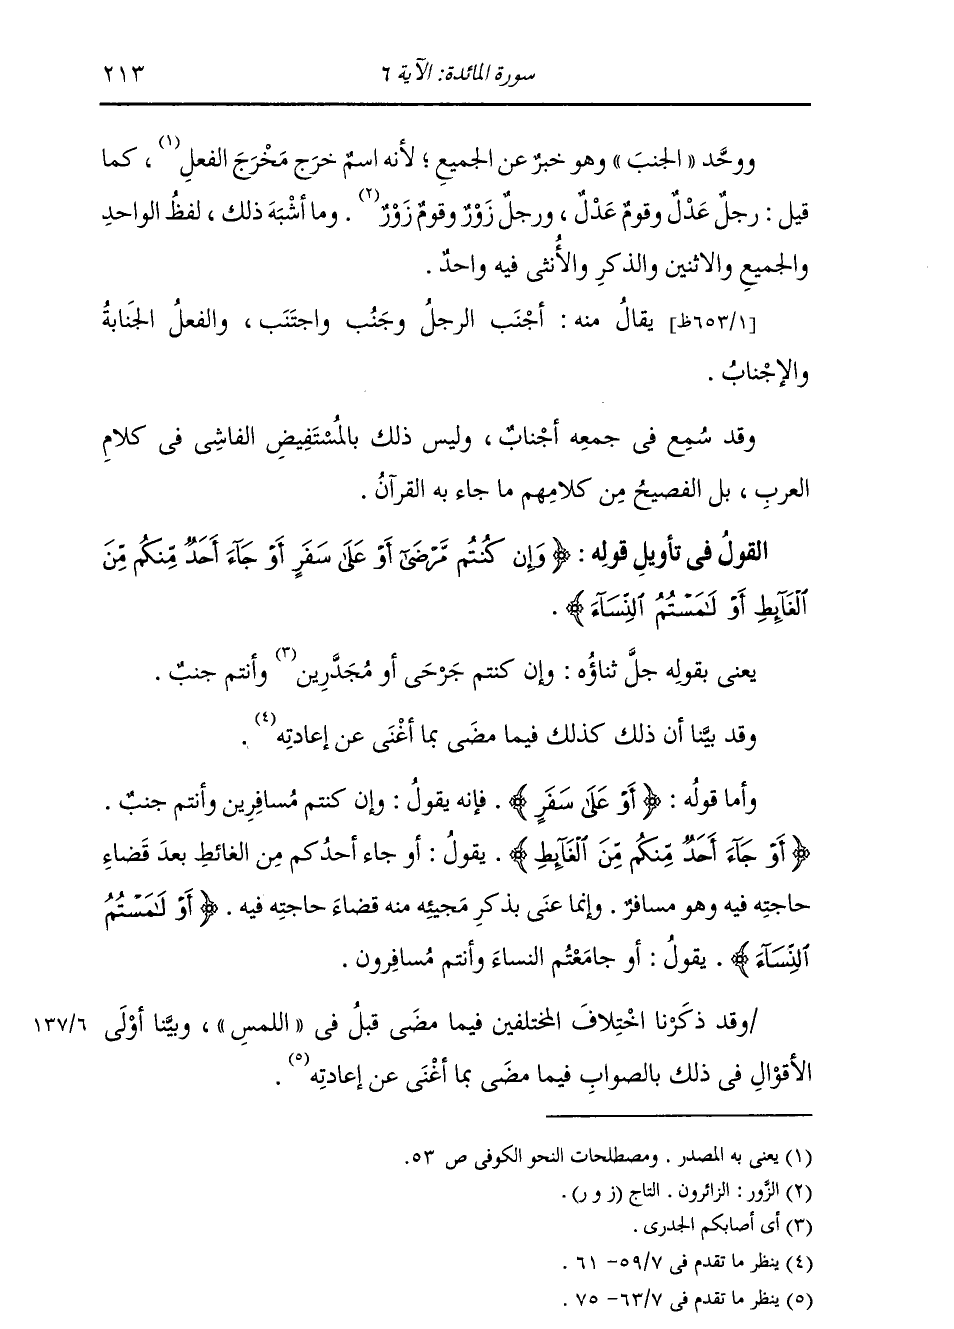 سورة المائدة: الآية ٦ ٢١٣
ووحَّد « الجنبَ » وهو خبرٌ عن الجميعِ ؛ لأنه اسمٌ خرَج مَخْرَجَ الفعلِ(١) ، كما
قيل : رجلٌ عَدْلٌ وقومٌ عَدْلٌ ، ورجلٌ زَوْرٌ وقومٌ زَوْرٌ(٢) . وما أشْبَهَ ذلك ، لفظُ الواحدِ
والجميعِ والاثنين والذكرِ والأُنثى فيه واحدٌ .
[٦٥٣/١ظ] يقالُ منه : أجْنَب الرجلُ وجَنُب واجتَنَب ، والفعلُ الجَنابةُ
والإجْنابُ .
وقد سُمِع فى جمعِه أجْنابٌ ، وليس ذلك بالمُسْتَفِيضِ الفاشِى فى كلامِ
العربِ ، بل الفصيحُ مِن كلامِهم ما جاء به القرآنُ .
القولُ فى تأويلِ قولِه : ﴿ وَإِن كُنتُم مَّرْضَىٰٓ أَوْ عَلَىٰ سَفَرٍ أَوْ جَآءَ أَحَدٌ مِّنكُم مِّنَ
ٱلْغَآئِطِ أَوْ لَـٰمَسْتُمُ ٱلنِّسَآءَ ﴾ .
يعنى بقولِه جلَّ ثناؤُه : وإن كنتم جَرْحَى أو مُجَدَّرِين(٣) وأنتم جنبٌ .
وقد بيَّنا أن ذلك كذلك فيما مضَى بما أغْنَى عن إعادتِه(٤) .
وأما قولُه : ﴿ أَوْ عَلَىٰ سَفَرٍ ﴾ . فإنه يقولُ : وإن كنتم مُسافِرِين وأنتم جنبٌ .
﴿ أَوْ جَآءَ أَحَدٌ مِّنكُم مِّنَ ٱلْغَآئِطِ ﴾ . يقولُ : أو جاء أحدُكم مِن الغائطِ بعدَ قَضاءِ
حاجتِه فيه وهو مسافرٌ . وإنما عنَى بذكرِ مَجيئِه منه قضاءَ حاجتِه فيه . ﴿ أَوْ لَـٰمَسْتُمُ
ٱلنِّسَآءَ ﴾ . يقولُ : أو جامَعْتُم النساءَ وأنتم مُسافِرون .
/وقد ذكَرْنا اخْتِلافَ المختلفين فيما مضَى قبلُ فى « اللمسِ » ، وبيَّنا أوْلَى ١٣٧/٦
الأقوْالِ فى ذلك بالصوابِ فيما مضَى بما أغْنَى عن إعادتِه(٥) .
(١) يعنى به المصدر . ومصطلحات النحو الكوفى ص ٥٣.
(٢) الزَّور : الزائرون . التاج (ز و ر) .
(٣) أى أصابكم الجدرى .
(٤) ينظر ما تقدم فى ٥٩/٧- ٦١ .
(٥) ينظر ما تقدم فى ٦٣/٧- ٧٥ .